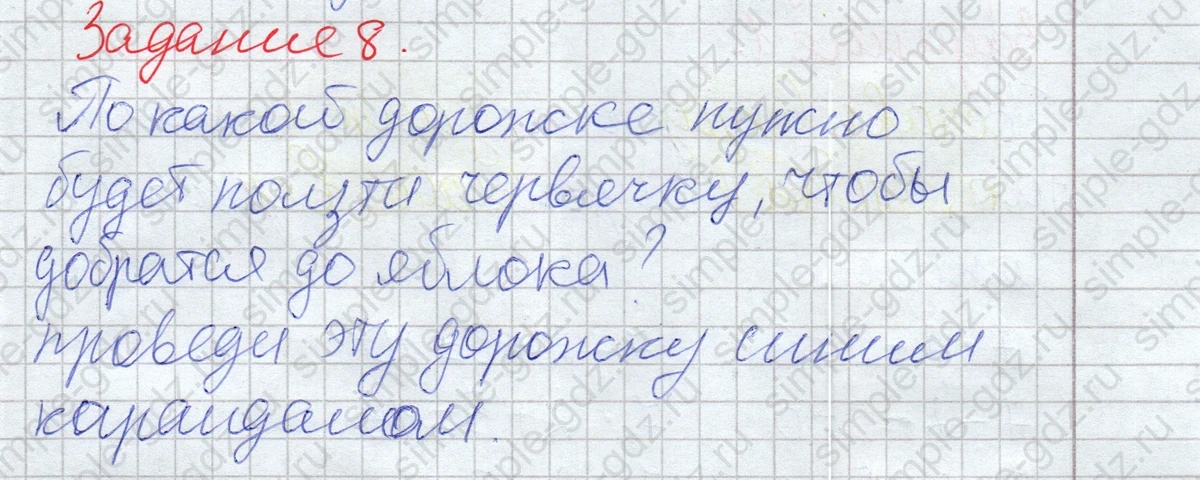 Задание 8.
По какой дорожке нужно
будет ползти червячку, чтобы
добратся до яблока?
проведи эту дорожку синим
карандашом.
simple-gdz.ru